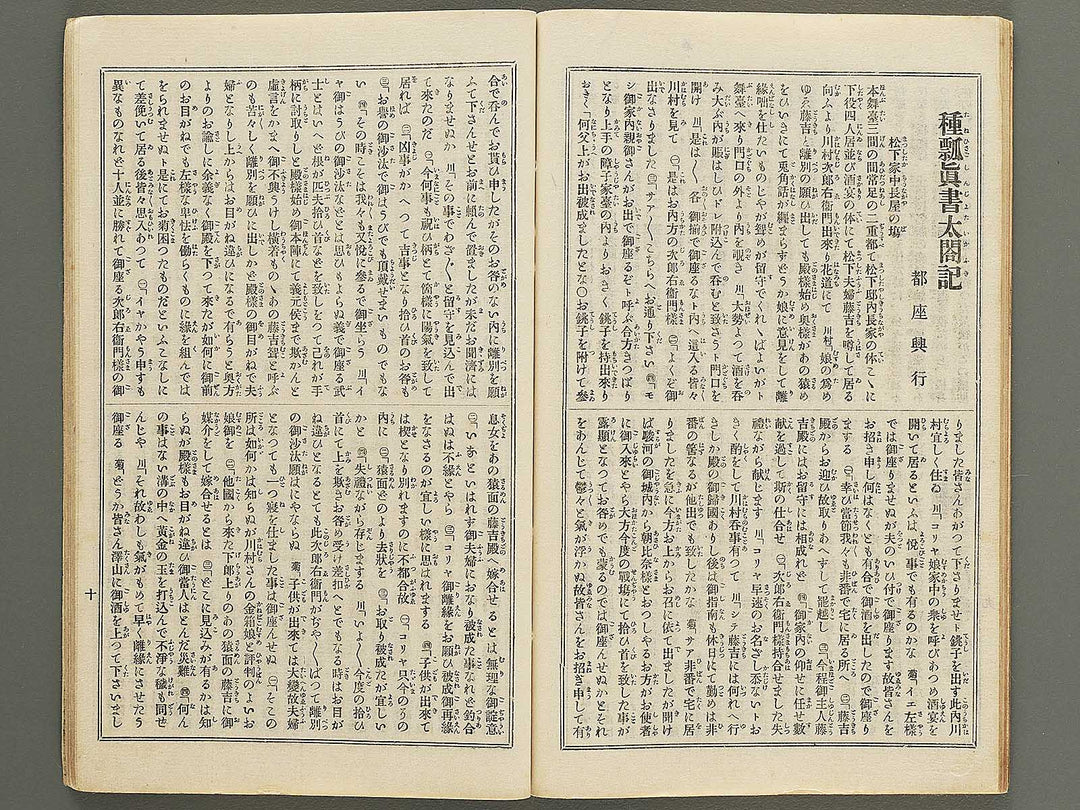 種瓢眞書太閤記
都座興行
松下家中長屋の塲
本舞臺三間の間常足の二重都て松下邸内長家の体こゝに
下役四人居並び酒宴の体にて松下夫婦藤吉を噂して居る
向ふより川村次郎右衛門出來り花道にて 川村、娘の爲め
ゆゑ藤吉と離別の願ひ出しても殿樣始め奥樣があの猿め
をひいきにて兎角話が纏まらずどうか娘に意見をして離
縁咄を仕たいものじやが聟めが留守でくれゝばよいがト
舞臺へ來り門口の外より内を覗き 川、大勢よつて酒を呑
み大ぶ内が賑はしひドレ附込んで呑むと致さうト門口を
開け 川、是は〳〵各御揃で御座るなト内へ這入る皆々
川村を見て ㊀、是はお内方の次郎右衛門樣 ㊁、よくぞ御
出なさりました ㊂、サア〳〵こちらへお通り下さい ㊃、モ
シ御家内親御さんがお出で御座るぞト呼ぶ合方きつぱり
となり上手の障子家臺の内よりおきく銚子を持出來り
おきく「何父上がお出被成ましたとな〇お銚子を附けて參
りました皆さんおあがつて下さりませト銚子を出す此内川
村宜しく住ゐ 川、コリヤ娘家中の衆を呼びあつめ酒宴を
開いて居るといふは、悦び事でも有るのかな 菊、イエ左樣
では御座りませぬが夫のいひ付で御座ります故皆さんを
お招き申し何はなくとも有合で御酒を出したので御座り
まする ㊀、幸ひ當節我々も非番で宅に居る所へ ㊁、藤吉
殿からお迎ひ故取りあへずして罷越し ㊂、今程御主人藤
吉殿にはお留守には相成れど ㊃、御家内の仰せに任せ數
献を過して斯の仕合せ ㊀、次郎右衛門樣持合せました失
禮ながら献じます 川、コリヤ早速のお名ざし忝ないトお
きく酌をして川村呑事有つて 川、シテ藤吉には何れへ行
きしか殿の御歸國ありし後は御指南も休日にて勤めは非
番の筈なるが他出でも致したかな 菊、サア非番で宅に居
りましたを急に今方お上からお召に依て出ましたが開け
ば駿河の御城内から朝比奈樣とおつしやるお方がお使者
に御入來とやら大方今度の戰塲にて拾ひ首を致した事が
露顯となつてお咎めでも蒙るのでは御座んせぬかとそれ
をあんじて鬱々と氣が浮かぬ故皆さんをお招き申して有
合で呑んでお貰ひ申したがそのお咎のない内に離別を願
ふて下さんせとお前に頼んで置ましたが未だお聞濟には
なりませぬか 川、その事でわざ〳〵と留守を見込んで出
て來たのだ ㊀、今何事も祝ひ柄とて箇樣に陽氣を致して
居れば ㊁、凶事がかへつて吉事となり拾ひ首のお咎も
㊂、お譽の御沙汰で御ほうびでも頂戴せまいものでもな
い ㊃、その時こそは我々も又悦に參るで御坐らう 川、イ
ヤ御ほうびの御沙汰などとは思ひもよらぬ義で御座る武
士とはいへど根が匹夫拾ひ首などを致しをつて己れが手
柄に討取りしと殿樣始め御本陣にて義元侯まで欺かんと
虚言をかまへ御不興うけし横着ものゝあの藤吉聟と呼ぶ
のも苦々しく離別を願ひに出しかど殿樣の御目がねで夫
婦となりし上からはお目がね違ひになるで有らうと奥方
よりのお諭しに余義なく御殿を下つて來たが如何に御前
のお目がねでも左樣な卑怯を働らくものに縁を組んでは
をられませぬト是にてお菊困つたものだといふこなしに
て差俛いて居る後皆々思入あつて ㊀、イヤかやう申すも
異なものなれど十人並に勝れて御座る次郎右衛門樣の御
息女をあの猿面の藤吉殿へ嫁合せるとは ㊁、無理な御諚意
㊂、いゝあとはいはれず御夫婦におなり被成た事なれど釣合
はぬは不縁とやら ㊀、コリヤ御離緣をお願ひ被成御再縁
をなさるのが宜しい樣に思はれまする ㊃、子供が出來て
は楔となり別れますのに不都合故 ㊀、コリヤ只今のうの
内に ㊁、猿面どのより去狀を ㊂、お取り被成たが宜しい
かと ㊃、失禮ながら存じまする 川、いよ〳〵今度の拾ひ
首にて上を欺きお咎め受け差扣へとでもなる時はお目が
ね違ひとなるとても此次郎右衛門がぢや〳〵ばつて離別
の御沙汰願はにやならぬ 菊、子供が出來ては大變故夫婦
となつても一つ寢を仕ました事は御座んせぬ ㊀、そこの
所は如何かは知らぬが川村さんの金箱娘と評判のよいお
娘御を ㊁、他國から來た下郎上りのあの猿面の藤吉に御
媒介をして嫁合せるとは ㊂、どこに見込みが有るかは知
らぬが殿樣もお目がね違ひ御當人はとんだ災難 ㊃、何ん
の事はない溝の中へ黄金の玉を打込んで不淨な穢も同せ
んじや 川、それ故わしも氣がもめて早く離緣にさせたう
御座る 菊、どうか皆さん澤山に御酒を上つて下さいまし
十